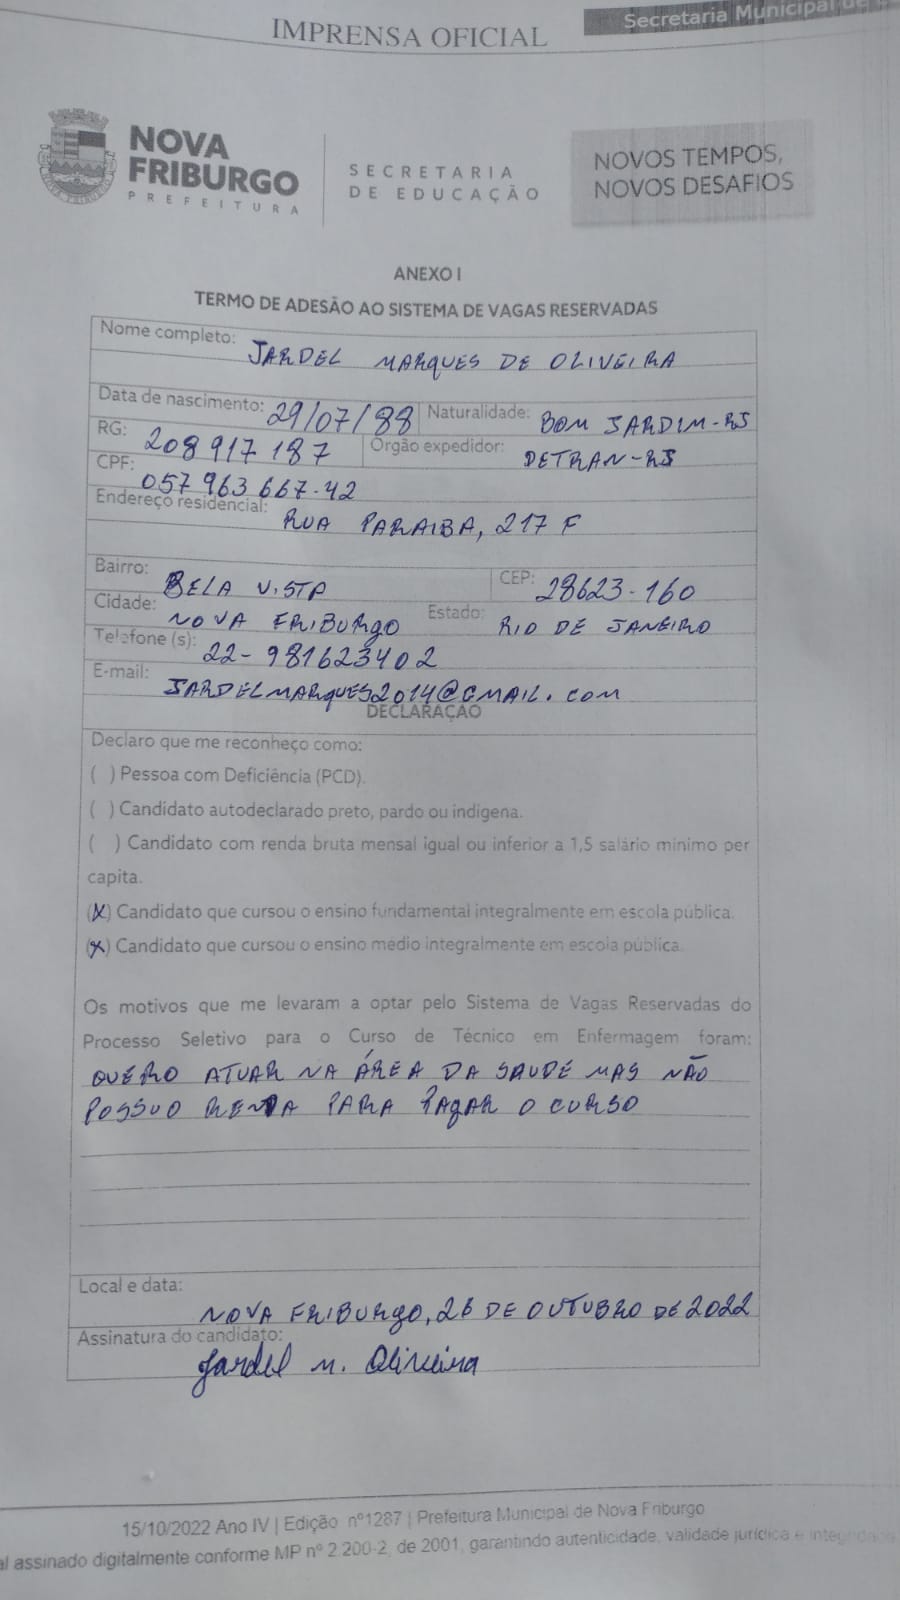 Secretaria Municipal de
IMPRENSA OFICIAL
NOVA
FRIBURGO
PREFEITURA
SECRETARIA
DE EDUCAÇÃO
NOVOS TEMPOS,
NOVOS DESAFIOS
ANEXO I
TERMO DE ADESÃO AO SISTEMA DE VAGAS RESERVADAS
Nome completo: JARDEL MARQUES DE OLIVEIRA
Data de nascimento: 29/07/88 Naturalidade: BOM JARDIM-RJ
RG: 208 917 187 Orgão expedidor: DETRAN-RJ
CPF: 057 963 667-42
Endereço residencial: RUA PARAIBA, 217 F
Bairro: BELA VISTA CEP: 28623-160
Cidade: NOVA FRIBURGO Estado: RIO DE JANEIRO
Telefone (s): 22-981623402
E-mail: JARDELMARQUES2014@GMAIL.COM
DECLARAÇÃO
Declaro que me reconheço como:
( ) Pessoa com Deficiência (PCD).
( ) Candidato autodeclarado preto, pardo ou indígena.
( ) Candidato com renda bruta mensal igual ou inferior a 1,5 salário mínimo per
capita.
(X) Candidato que cursou o ensino fundamental integralmente em escola pública.
(X) Candidato que cursou o ensino médio integralmente em escola pública.
Os motivos que me levaram a optar pelo Sistema de Vagas Reservadas do
Processo Seletivo para o Curso de Técnico em Enfermagem foram:
QUERO ATUAR NA ÁREA DA SAUDE MAS NÃO
POSSUO RENDA PARA PAGAR O CURSO
Local e data: NOVA FRIBURGO, 26 DE OUTUBRO DE 2022
Assinatura do candidato: Jardel M. Oliveira
15/10/2022 Ano IV | Edição nº1287 | Prefeitura Municipal de Nova Friburgo
al assinado digitalmente conforme MP nº 2.200-2, de 2001, garantindo autenticidade, validade jurídica e integridade